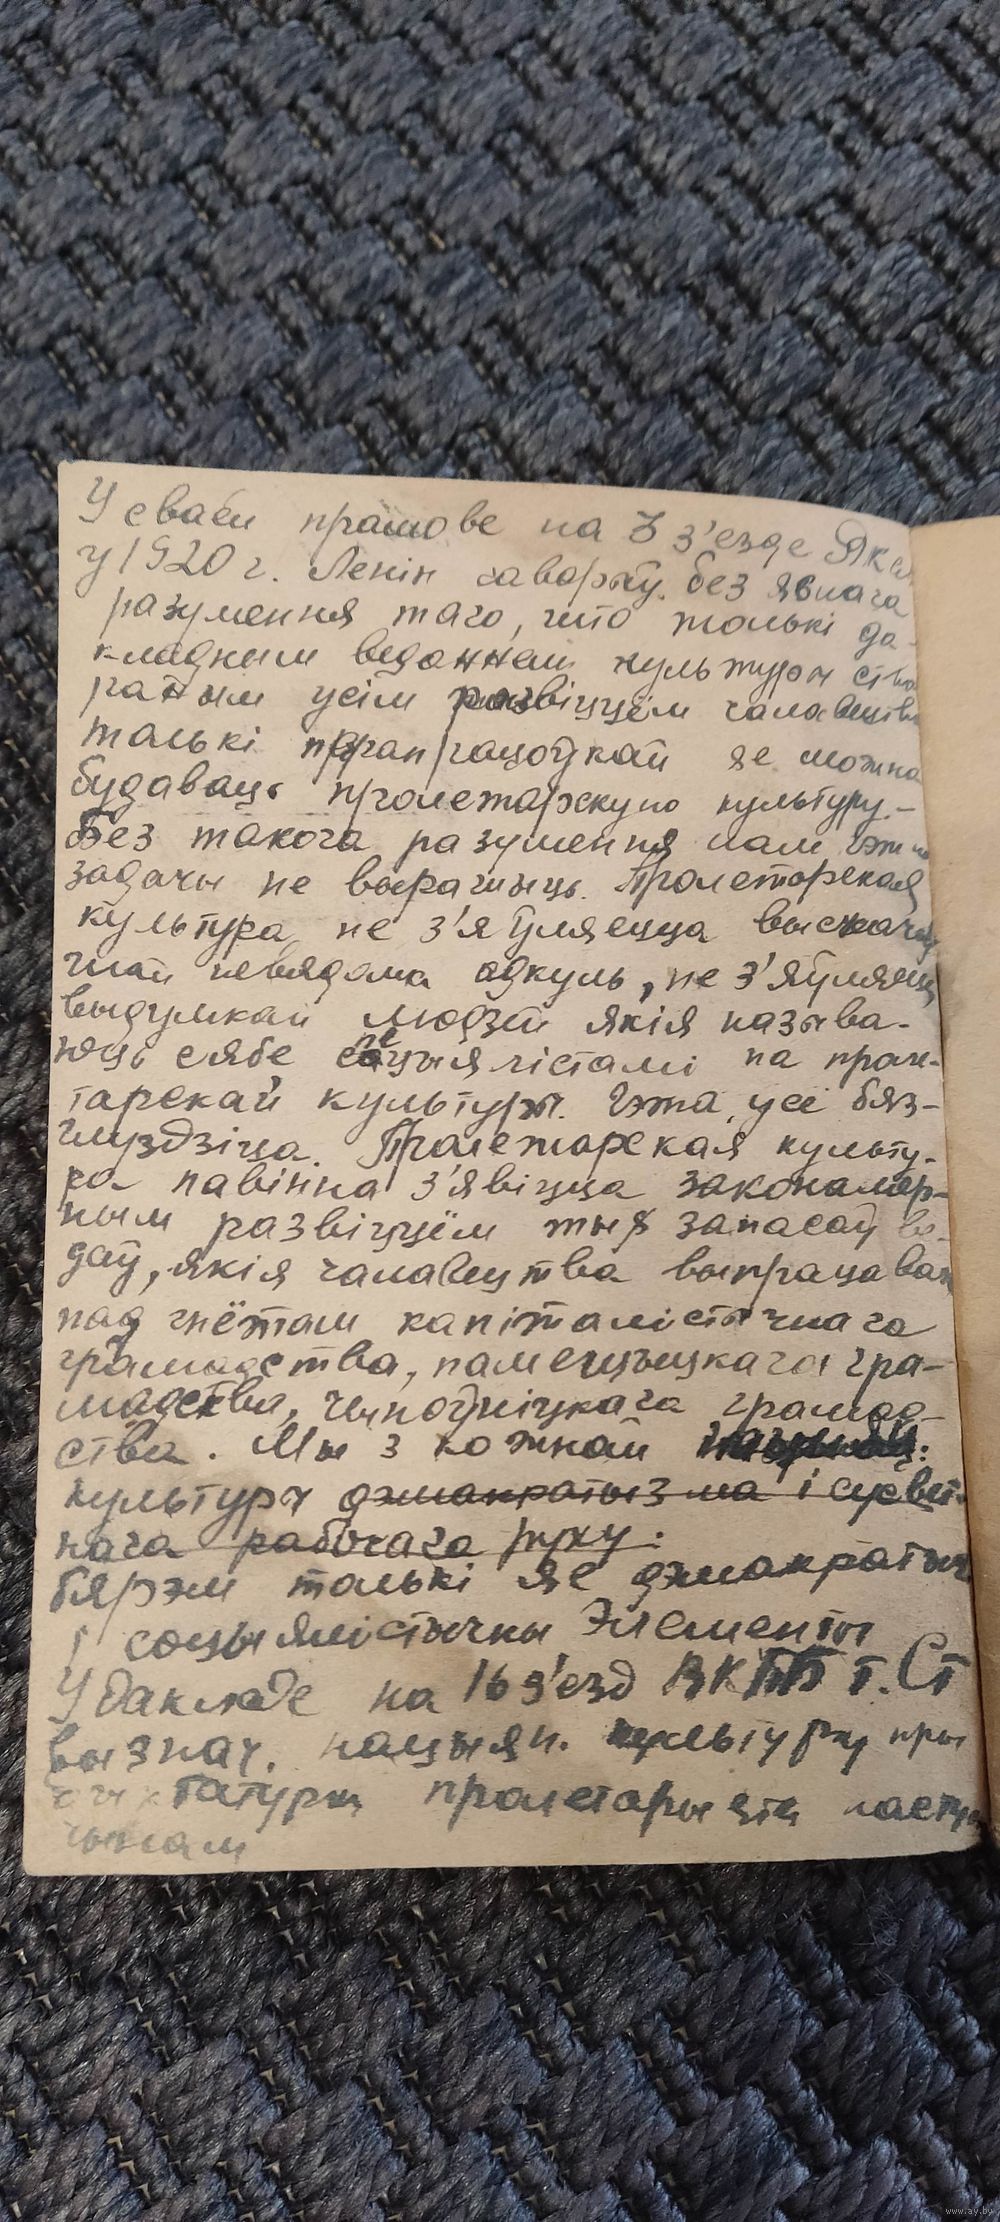 У сваёй прамове на з'езде
у 1920 г. Ленін гаварыў. без явнага
разумення таго, што толькі да-
кладным веданнем культуры
усім развіццём чалавецтва
толькі яе можна
будаваць пролетарскую культуру.-
Без такога разумення нам
задачы не вырашыць. Пролетарская
культура не з'яўляецца
невядома адкуль, не з'яўляецц
выдумкай людзей якія называ-
юць сябе па прале-
тарскай культуры. Гэта усё бяз-
глуздзіца. Пролетарская культу-
ра павінна з'явіцца закономер-
ным развіццём тых запасаў ве-
даў, якія чалавецтва выпрацавал
пад гнётам капіталістычнага
грамадства, памешчыцкага гра-
мадства, чыноўніцкага грамад-
ства. Мы з кожнай
культуры дэмакратызма і сусвет-
нага рабочага руху.
бярэм толькі яе дэмакратыч
і соцыялістычны элементы
У дакладе на 16 з'езд ВКПБ т. Ст
вызнач. нацыян. культуру пры
дыктатуры пралетарыята наступ
чынам
www.ay.by